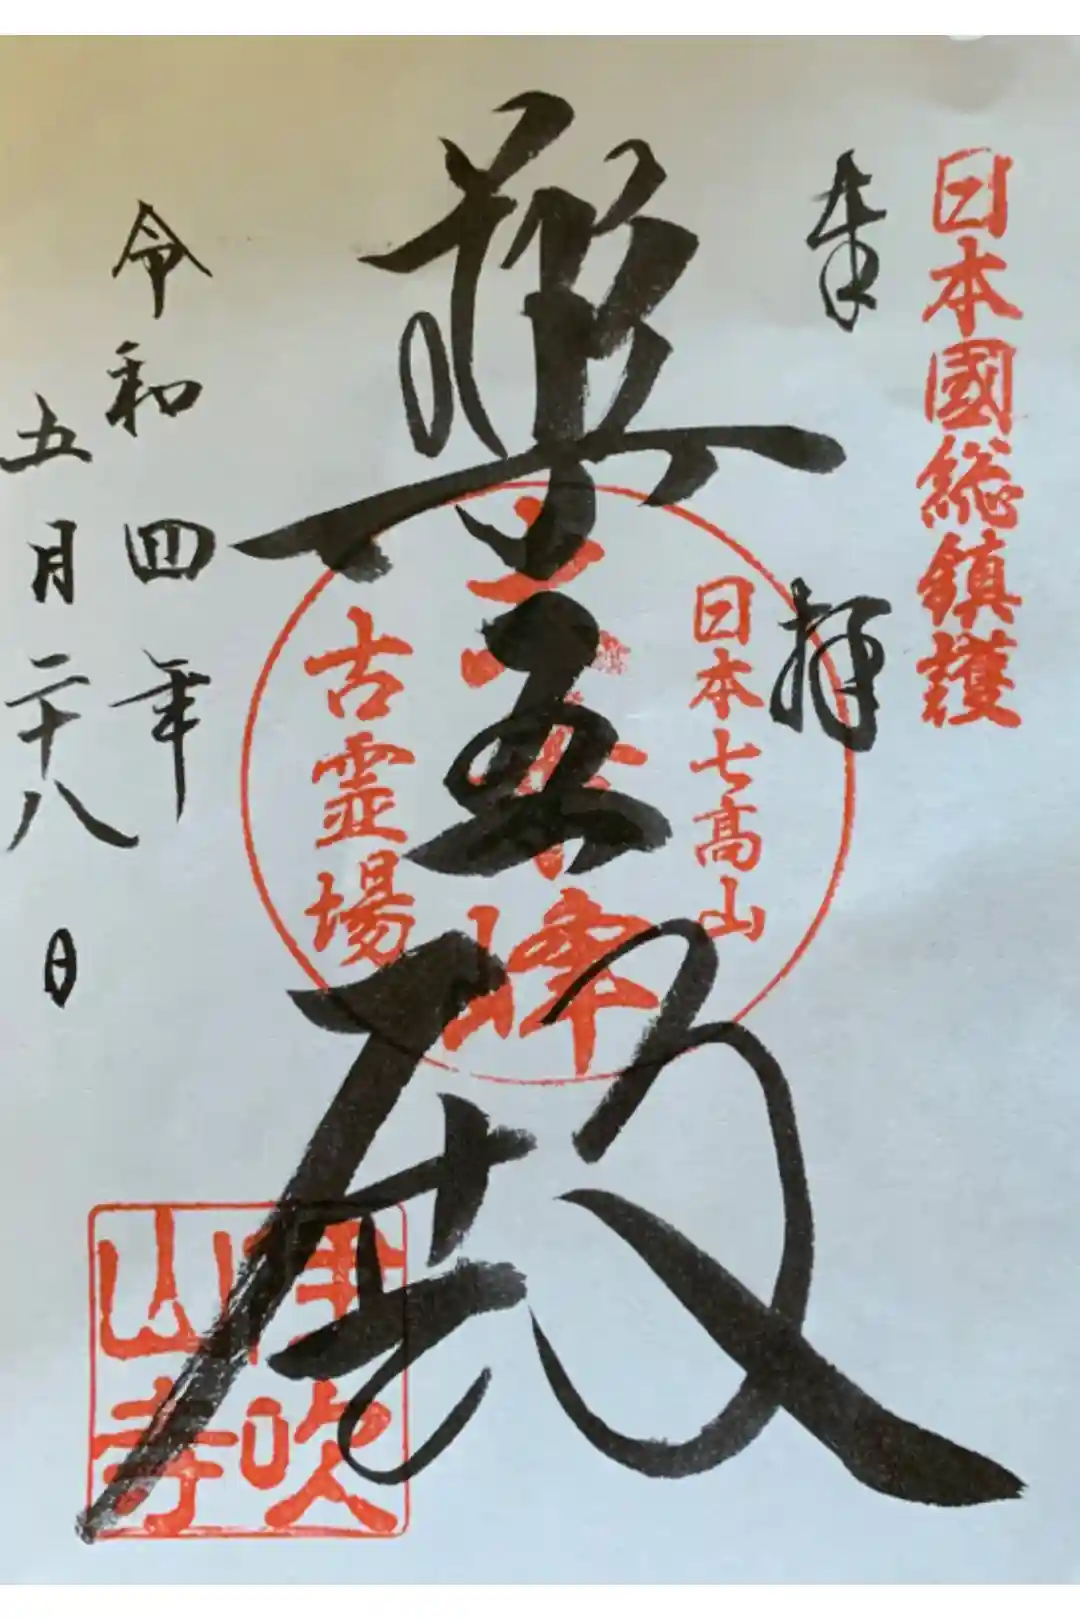 日本國総鎮護
奉拝
殿
日本七高山
峰
古霊場
令和四年
五月二十八日
伊吹
山寺